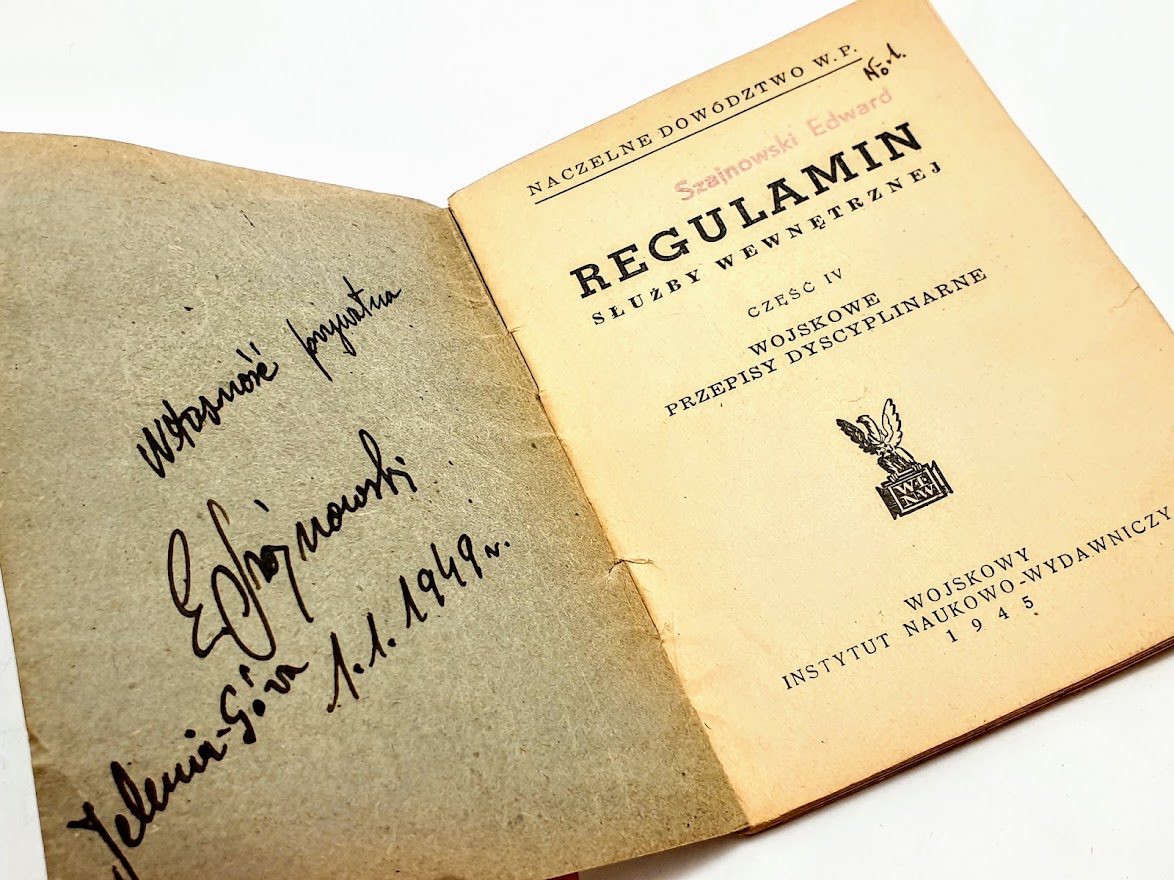 Własność prywatna
E. Szajnowski
Jelenia-Góra 1.1.1949 r.
NACZELNE DOWÓDZTWO W. P.
No 1.
Szajnowski Edward
REGULAMIN
SŁUŻBY WEWNĘTRZNEJ
CZĘŚĆ IV
WOJSKOWE
PRZEPISY DYSCYPLINARNE
W.I.
N.W.
WOJSKOWY
INSTYTUT NAUKOWO-WYDAWNICZY
1945